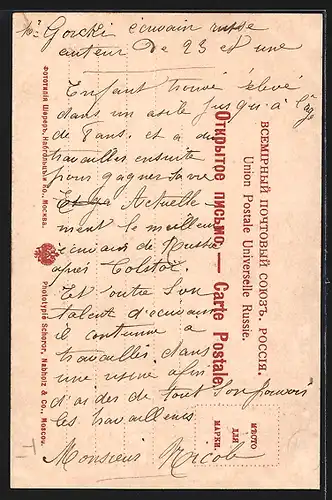 Mr Gorcki écrivain russe
auteur De 23 et une
Enfant trouvé élevé
dans un asile jusqu'à l'âge
de 8 ans. et a du
travailler ensuite
pour gagner sa vie
Actuelle-
ment le meilleur
écrivain de Russie
après Tolstoï.
Et outre son
talent d'écrivain
il continue a
travailler dans
une usine afin
d'aider de tout son pouvoir
les travailleurs
Monsieur Nicole
ВСЕМІРНЫЙ ПОЧТОВЫЙ СОЮЗЪ. РОССІЯ.
Union Postale Universelle Russie.
Открытое письмо. — Carte Postale.
МѢСТО
ДЛЯ
МАРКИ.
Фототипія Шереръ, Набгольцъ и Ко., Москва.
Phototypie Scherer, Nabholz & Co., Moscou.